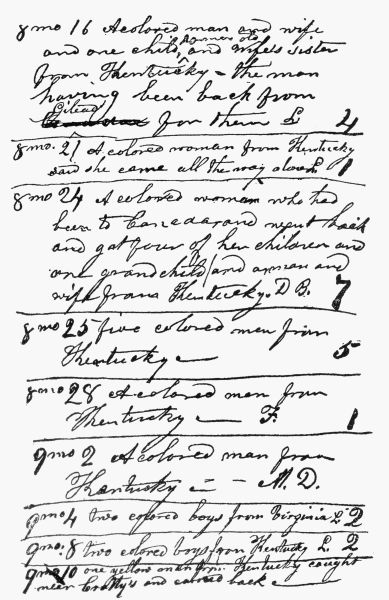 8 mo 16 A colored man and wife
and one child, and wife's sister
from Kentucky - the man
having been back from
Gilead
for them L 4
8 mo. 21 A colored woman from Kentucky
said she came all the way alone L 1
8 mo 24 A colored woman who had
been to Canada and went back
and got four of her children and
one grandchild, and a man and
wife from Kentucky. D B. 7
8 mo 25 five colored men from
Kentucky 5
8 mo 28 A colored man from
Kentucky — F. 1
9 mo 2 A colored man from
Kentucky - - M. D.
9 mo 4 two colored boys from Virginia L 2
9 mo. 8 two colored boys from Kentucky L. 2
9 mo 10 one yellow man from Kentucky caught
near and carried back